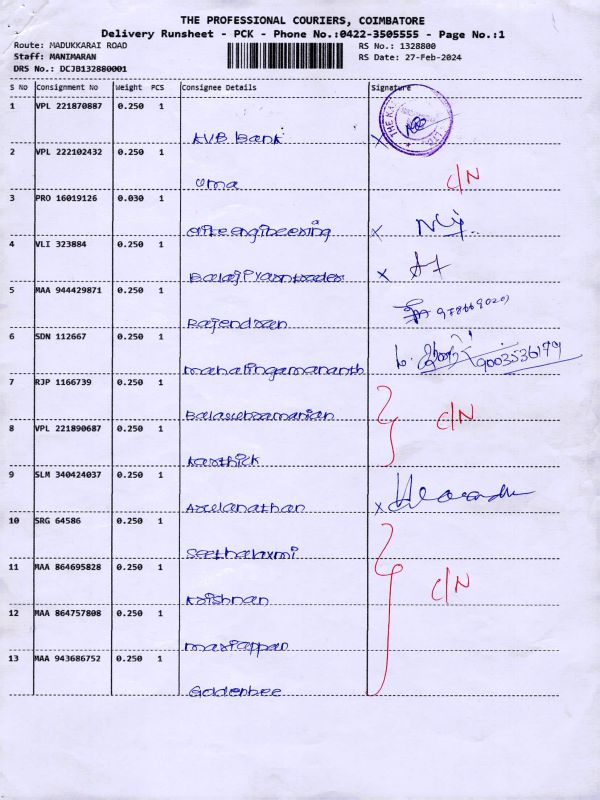 THE PROFESSIONAL COURIERS, COIMBATORE
Delivery Runsheet - PCK - Phone No.:0422-3505555 - Page No.:1
Route: MADUKKARAI ROAD
Staff: MANIMARAN
DRS No.: DCJB132880001
RS No.: 1328800
RS Date: 27-Feb-2024
S No Consignment No Weight PCS Consignee Details Signature
1 VPL 221870887 0.250 1
KVB Bank X
2 VPL 222102432 0.250 1
uma C/N
3 PRO 16019126 0.030 1
engineering X
4 VLI 323884 0.250 1
Balaji Yarn trader X
5 MAA 944429871 0.250 1
Rajendran
6 SDN 112667 0.250 1
mahalingamananth 9003536179
7 RJP 1166739 0.250 1
Balasubramanian C/N
8 VPL 221890687 0.250 1
Karthick
9 SLM 340424037 0.250 1
Arulanathan X
10 SRG 64586 0.250 1
Seethalaxmi
11 MAA 864695828 0.250 1
Krishnan C/N
12 MAA 864757808 0.250 1
mariappan
13 MAA 943686752 0.250 1
Goldenbee